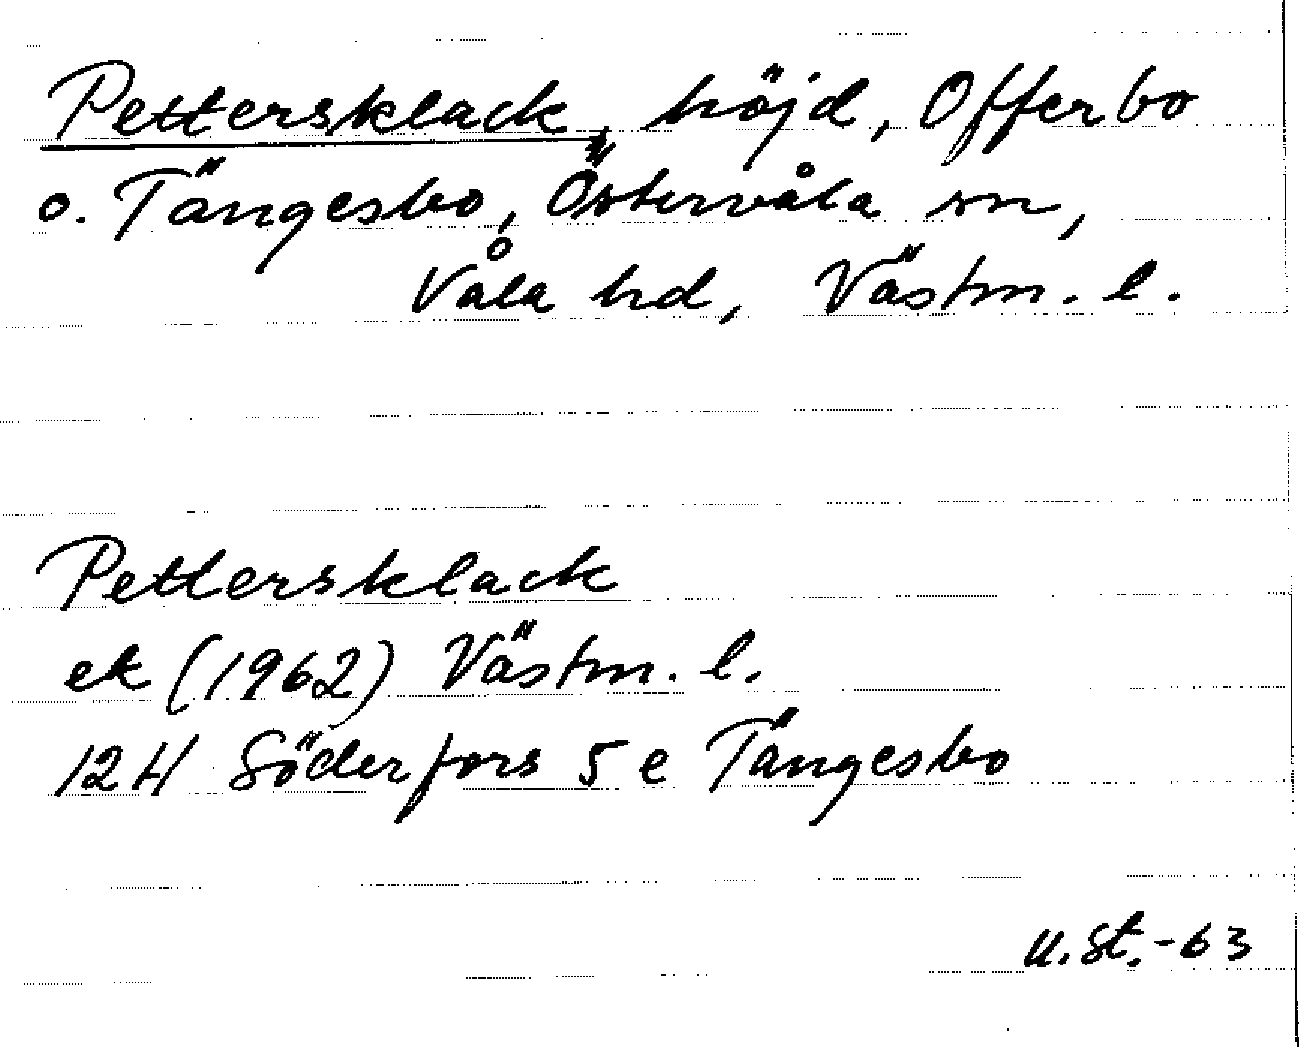 Pettersklack, höjd, Offerbo
o. Tängesbo, Östervåla sn,
Våla hd, Västm. l.
Pettersklack
ek (1962) Västm. l.
12 H Söderfors 5 e Tängesbo
U. St. -63